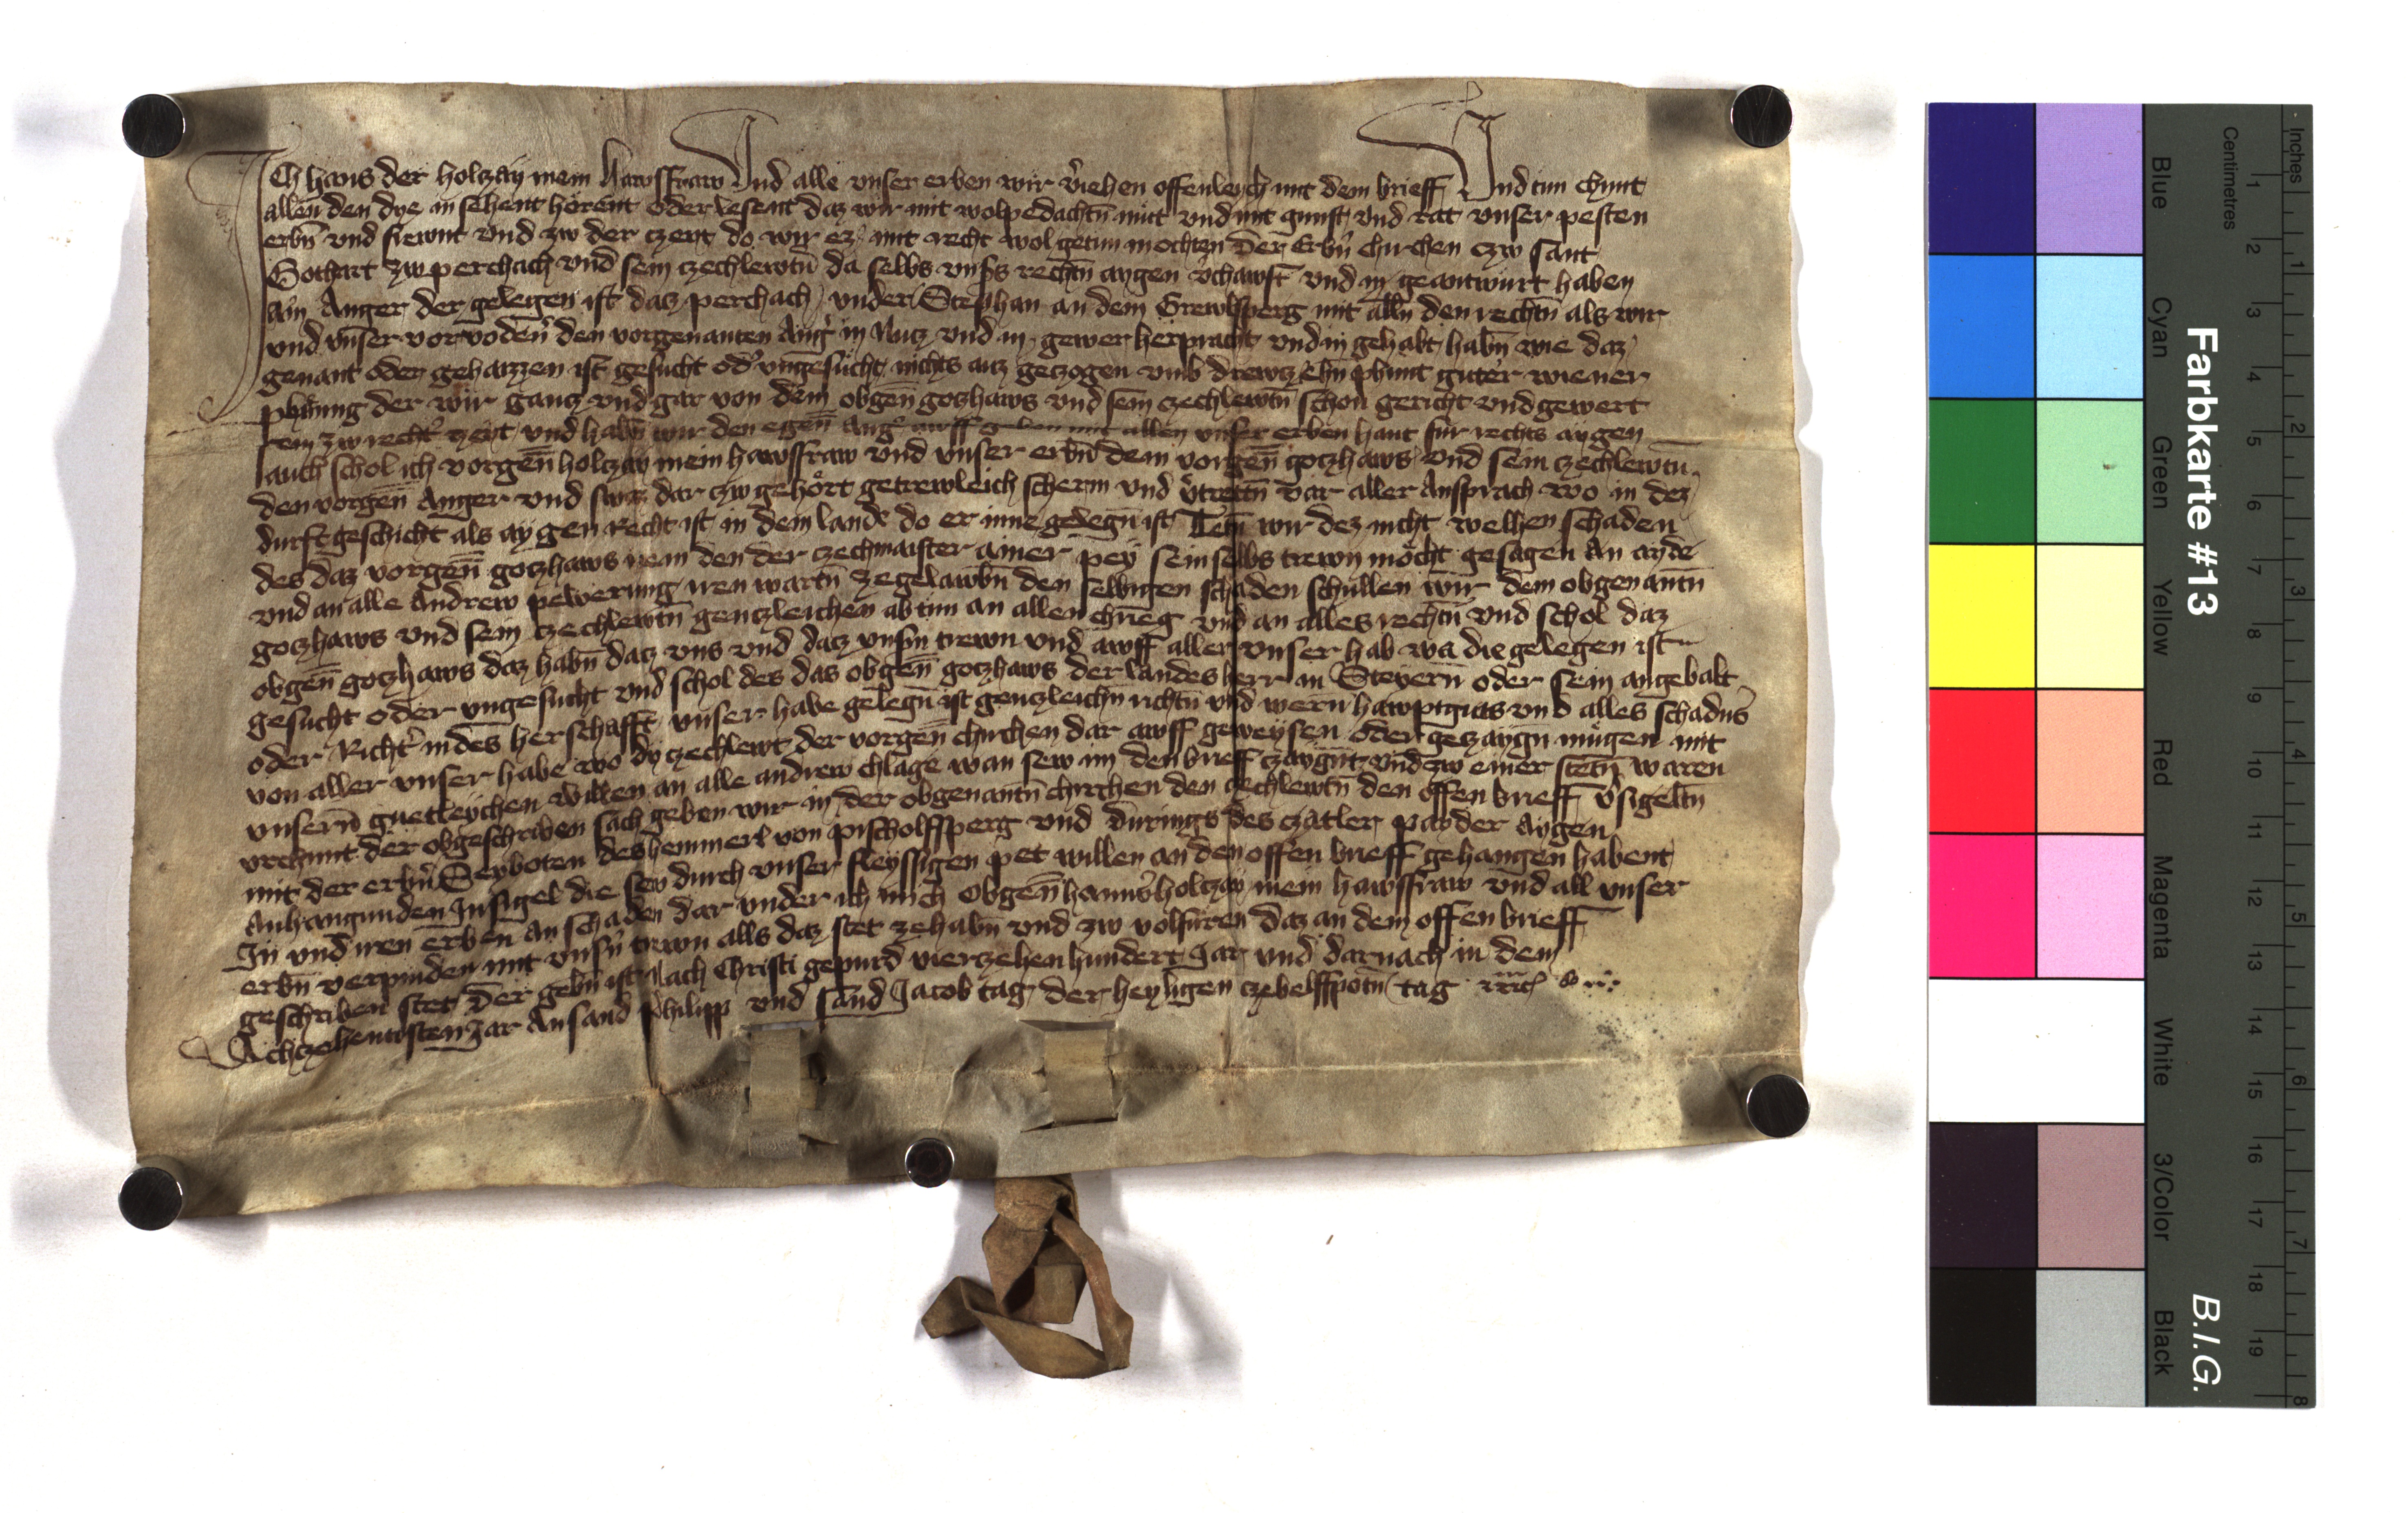 Ich hans der holczay mein hawsffraw Und alle vnser erben wir v̉iehen offenleich mit dem brieff Und tun chunt
allen den dye an sehent hörent oder lesent daz wir mit wolpedachtn̄ mut vnd mit gunst vnd rat vnser pesten
erbn̄ vnd frewnt vnd zw der czeyt do wir ez mit recht wol getun mochten Der Erbn̉ chirchen czw sant
Gothart zw perchach vnd sein czechlewtn̄ da selbs vnsers rechtn̄ aygen v̉chawft vnd in geantwurt haben
ain Anger der gelegen ist daz perchach vnder Stephan an dem Grewlsperg mit alln̄ den rechtn̄ als wir
vnd vnser vorvodern̉ den vorgenanten Ang̉ in Nutz vnd in gewer herpracht vnd in gehabt habn̄ wie daz
genant oder gehaizzen ist gesucht od̉ vngesucht nichts auz geczogen vmb drewczehn̄ phunt guter wiener
phening der wir gancz vnd gar von dem obgen̄ goczhaws vnd sein czechlewtn̄ schon gericht vnd gewert
sein zw recht̉ zeyt vnd habn̄ wir den egen̄ Ang̉ awff geben mit allen vnser erben hant für rechts aygen
auch schol ich vorgen̄ holczay mein hawsffraw vnd vnser erbn̄ dem vorgen̄ goczhaws vnd sein czechlewtn̄
den vorgen̄ Anger vnd swaz dar czw gehört getrewleich scherm vnd v̉tretn̄ vor aller Ansprach wo in dez
durft geschicht als aygen recht ist in dem lande do er inne gelegn̄ ist Tetn̄ wir dez nicht welhen schaden
des daz vorgen̄ goczhaws nem den der czechmaister ainer pey sein selbs trewn möcht gesagen An ayde
vnd an alle Andrew pewerung iren wartn̄ ze gelawbn̄ den selbigen schaden schullen wir dem obgenantn̄
goczhaws vnd sein czechlewtn̄ genczleichen ab tun an allen chrieg vnd an alles rechtn̄ vnd schol daz
obgen̄ goczhaws daz habn̄ datz vns vnd datz vnsern trewn vnd awff aller vnser hab wa die gelegen ist
gesucht oder vngesucht vnd schol des das obgen̄ goczhaws der landes herr in Steyern̄ oder sein angebalt
oder Richt̉ in des herschafft vnser habe gelegn̄ ist genczleichn richtn̄ vnd wern hawptguts vnd alles schadns̉
von aller vnser habe wo dy czechlewt der vorgen̄ chirchen dar awff geweysen oder geczaygn̄ mugen mit
vnsern̄ guetleychen willen an alle andrew chlage wan sew im den brieff czaygnt vnd zw einer stetn̄ waren
vrchunt der obgeschriben sach geben wir in der obgenantn̄ chirchen den czechlewtn̄ den offen brieff v̉sigeltn̄
mit der erbn̉ Seyboten des hemmerl von pischolffsperg vnd durings des czatler pay der Aygen
Anhangunden Insigel die sew durch vnser fleyssigen pet willen an den offen brieff gehangen habent
In vnd iren erben an schaden dar vnder ich mich obgen̄ hanns holczay mein hawsffraw vnd all vnser
erbn̄ verpinden mit vnsn̉ trewn alls daz stet ze habn̄ vnd zw volfüren daz an dem offen brieff
geschriben stet Der gebn̄ ist Nach Christi gepurd vierczehenhundert Jar vnd darnach in dem
Achczehentisten Jar An sand Philipp vnd sand Jacob tag der heyligen czebelffpotn̄ tag
Farbkarte #13
B.I.G.
Blue
Cyan
Green
Yellow
Red
Magenta
White
3/Color
Black
Centimetres
1 2 3 4 5 6 7 8 9 10 11 12 13 14 15 16 17 18 19
Inches
1 2 3 4 5 6 7 8